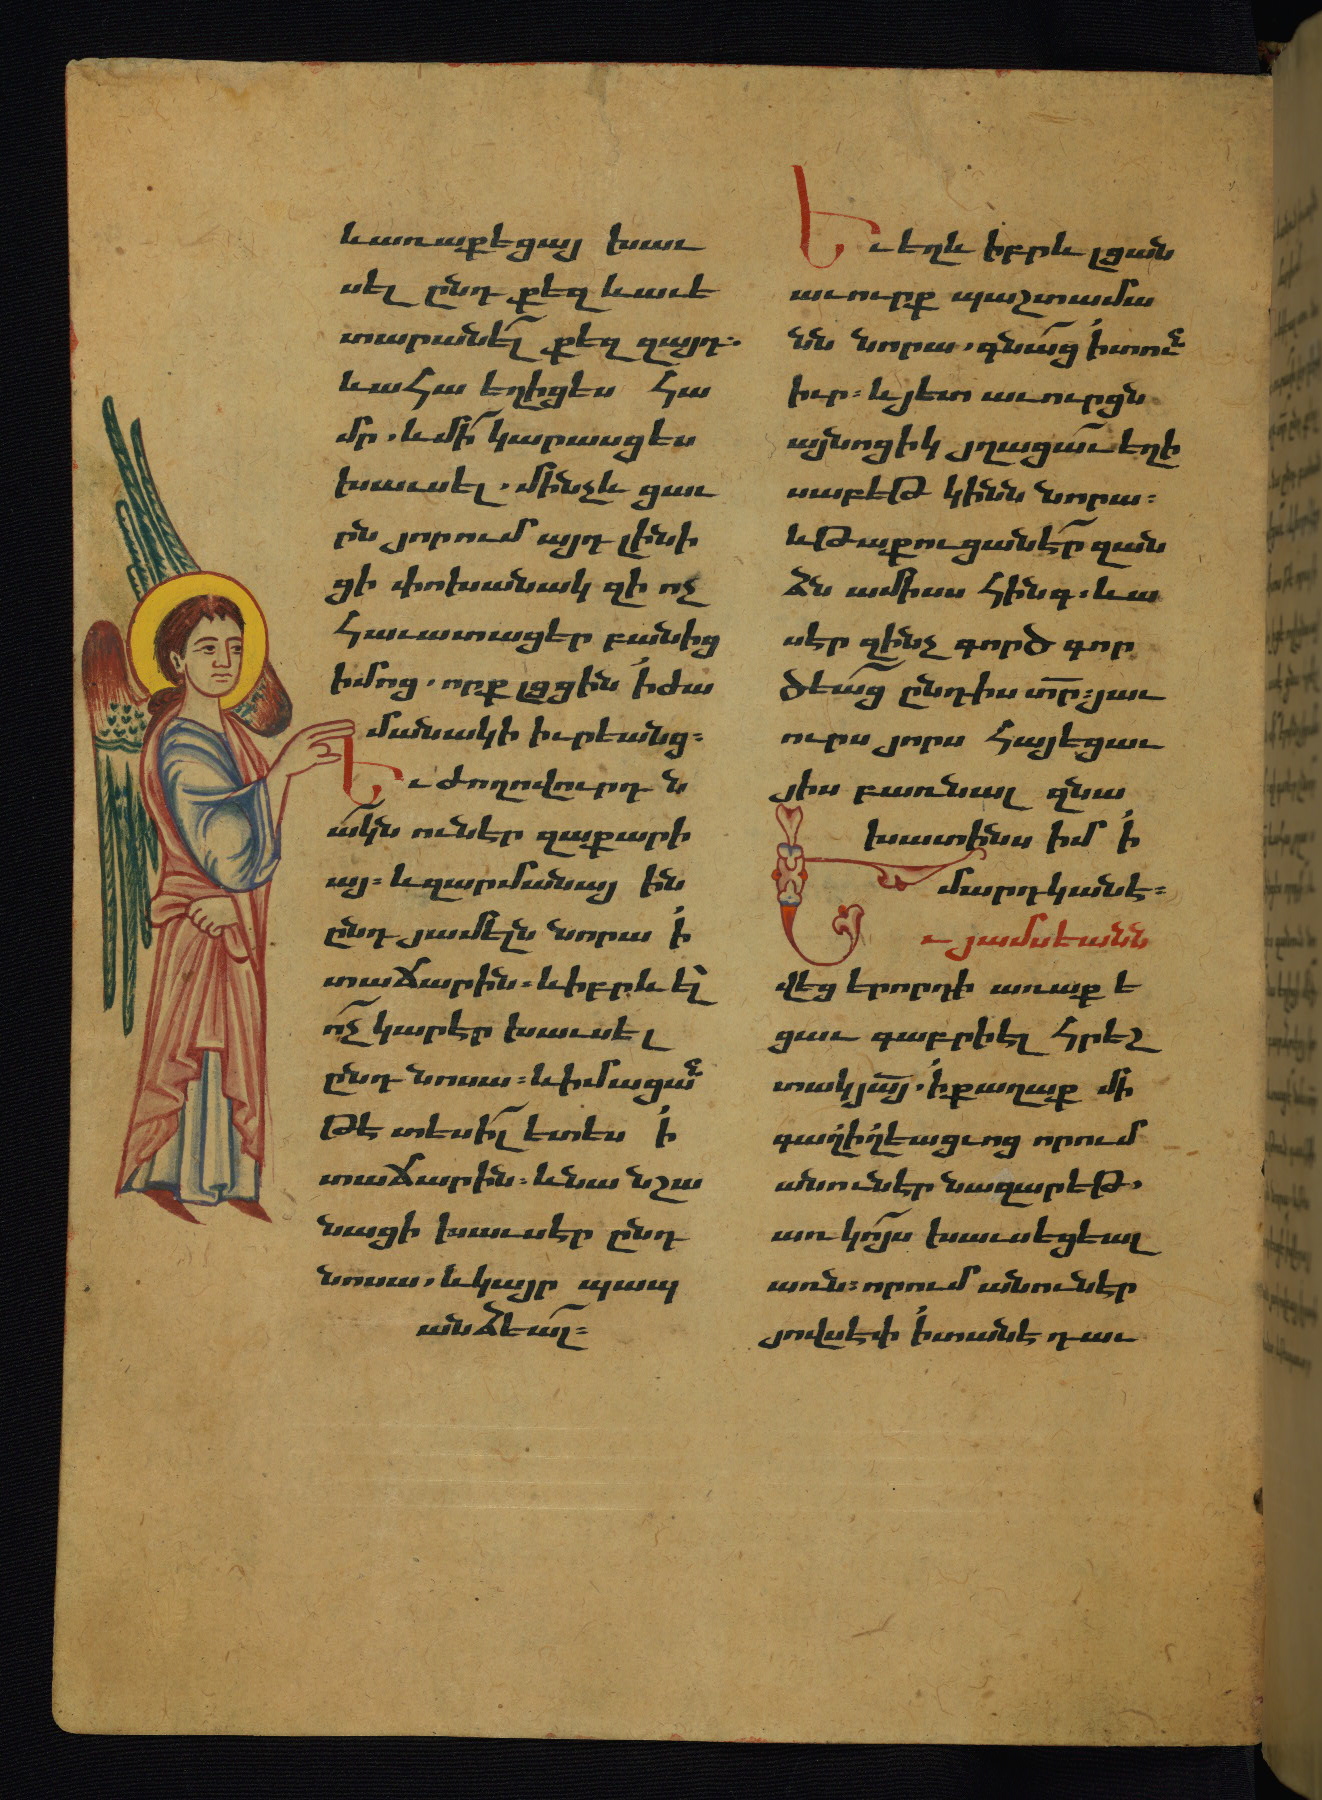 եւառաքեցայ խաւ
սել ընդ քեզ եւաւե
տարանել քեզ զայդ։
եւահա եղիցես հա
մր. եւմի կարասցես
խաւսել. մինչեւ ցաւ
րն յորում այդ լինի
ցի փոխանակ զի ոչ
հաւատացեր բանից
իմոց. որք լցցին իժա
մանակի իւրեանց։
Եւ ժողովուրդ ն
ակն ունէր զաքարի
այ։ եւզարմանայ ին
ընդ յամելն նորա ի
տաճարին։ եւիբրեւ ել
ոչ կարէր խաւսել
ընդ նոսա։ եւիմացան
թե տեսիլ ետես ի
տաճարին։ եւնա նշա
նացի խաւսէր ընդ
նոսա. եւկայր պապ
անձեալ։
Եւ եղեւ իբրեւ լցան
աւուրք պաշտամա
նն նորա. գնաց իտուն
իւր։ եւյետ աւուրցն
այնոցիկ յղացաւ եղի
սաբեթ կինն նորա։
եւթաքուցանէր զան
ձն ամիսս հինգ. եւա
սէր զինչ գործ գոր
ծեաց ընդիս տր։ յաւ
ուրս յորս հայեցաւ
յիս բառնալ զնա
խատինս իմ ի
մարդկանէ։
Եւ յամսեանն
վեց երորդի առաք ե
ցաւ գաբրիէլ հրեշ
տակ յայ. իքաղաք մի
գալիլեացւոց որում
անունէր նազարեթ.
առ կոյս խաւսեցեալ
առն։ որում անունէր
յովսեփ իտանէ դաւ